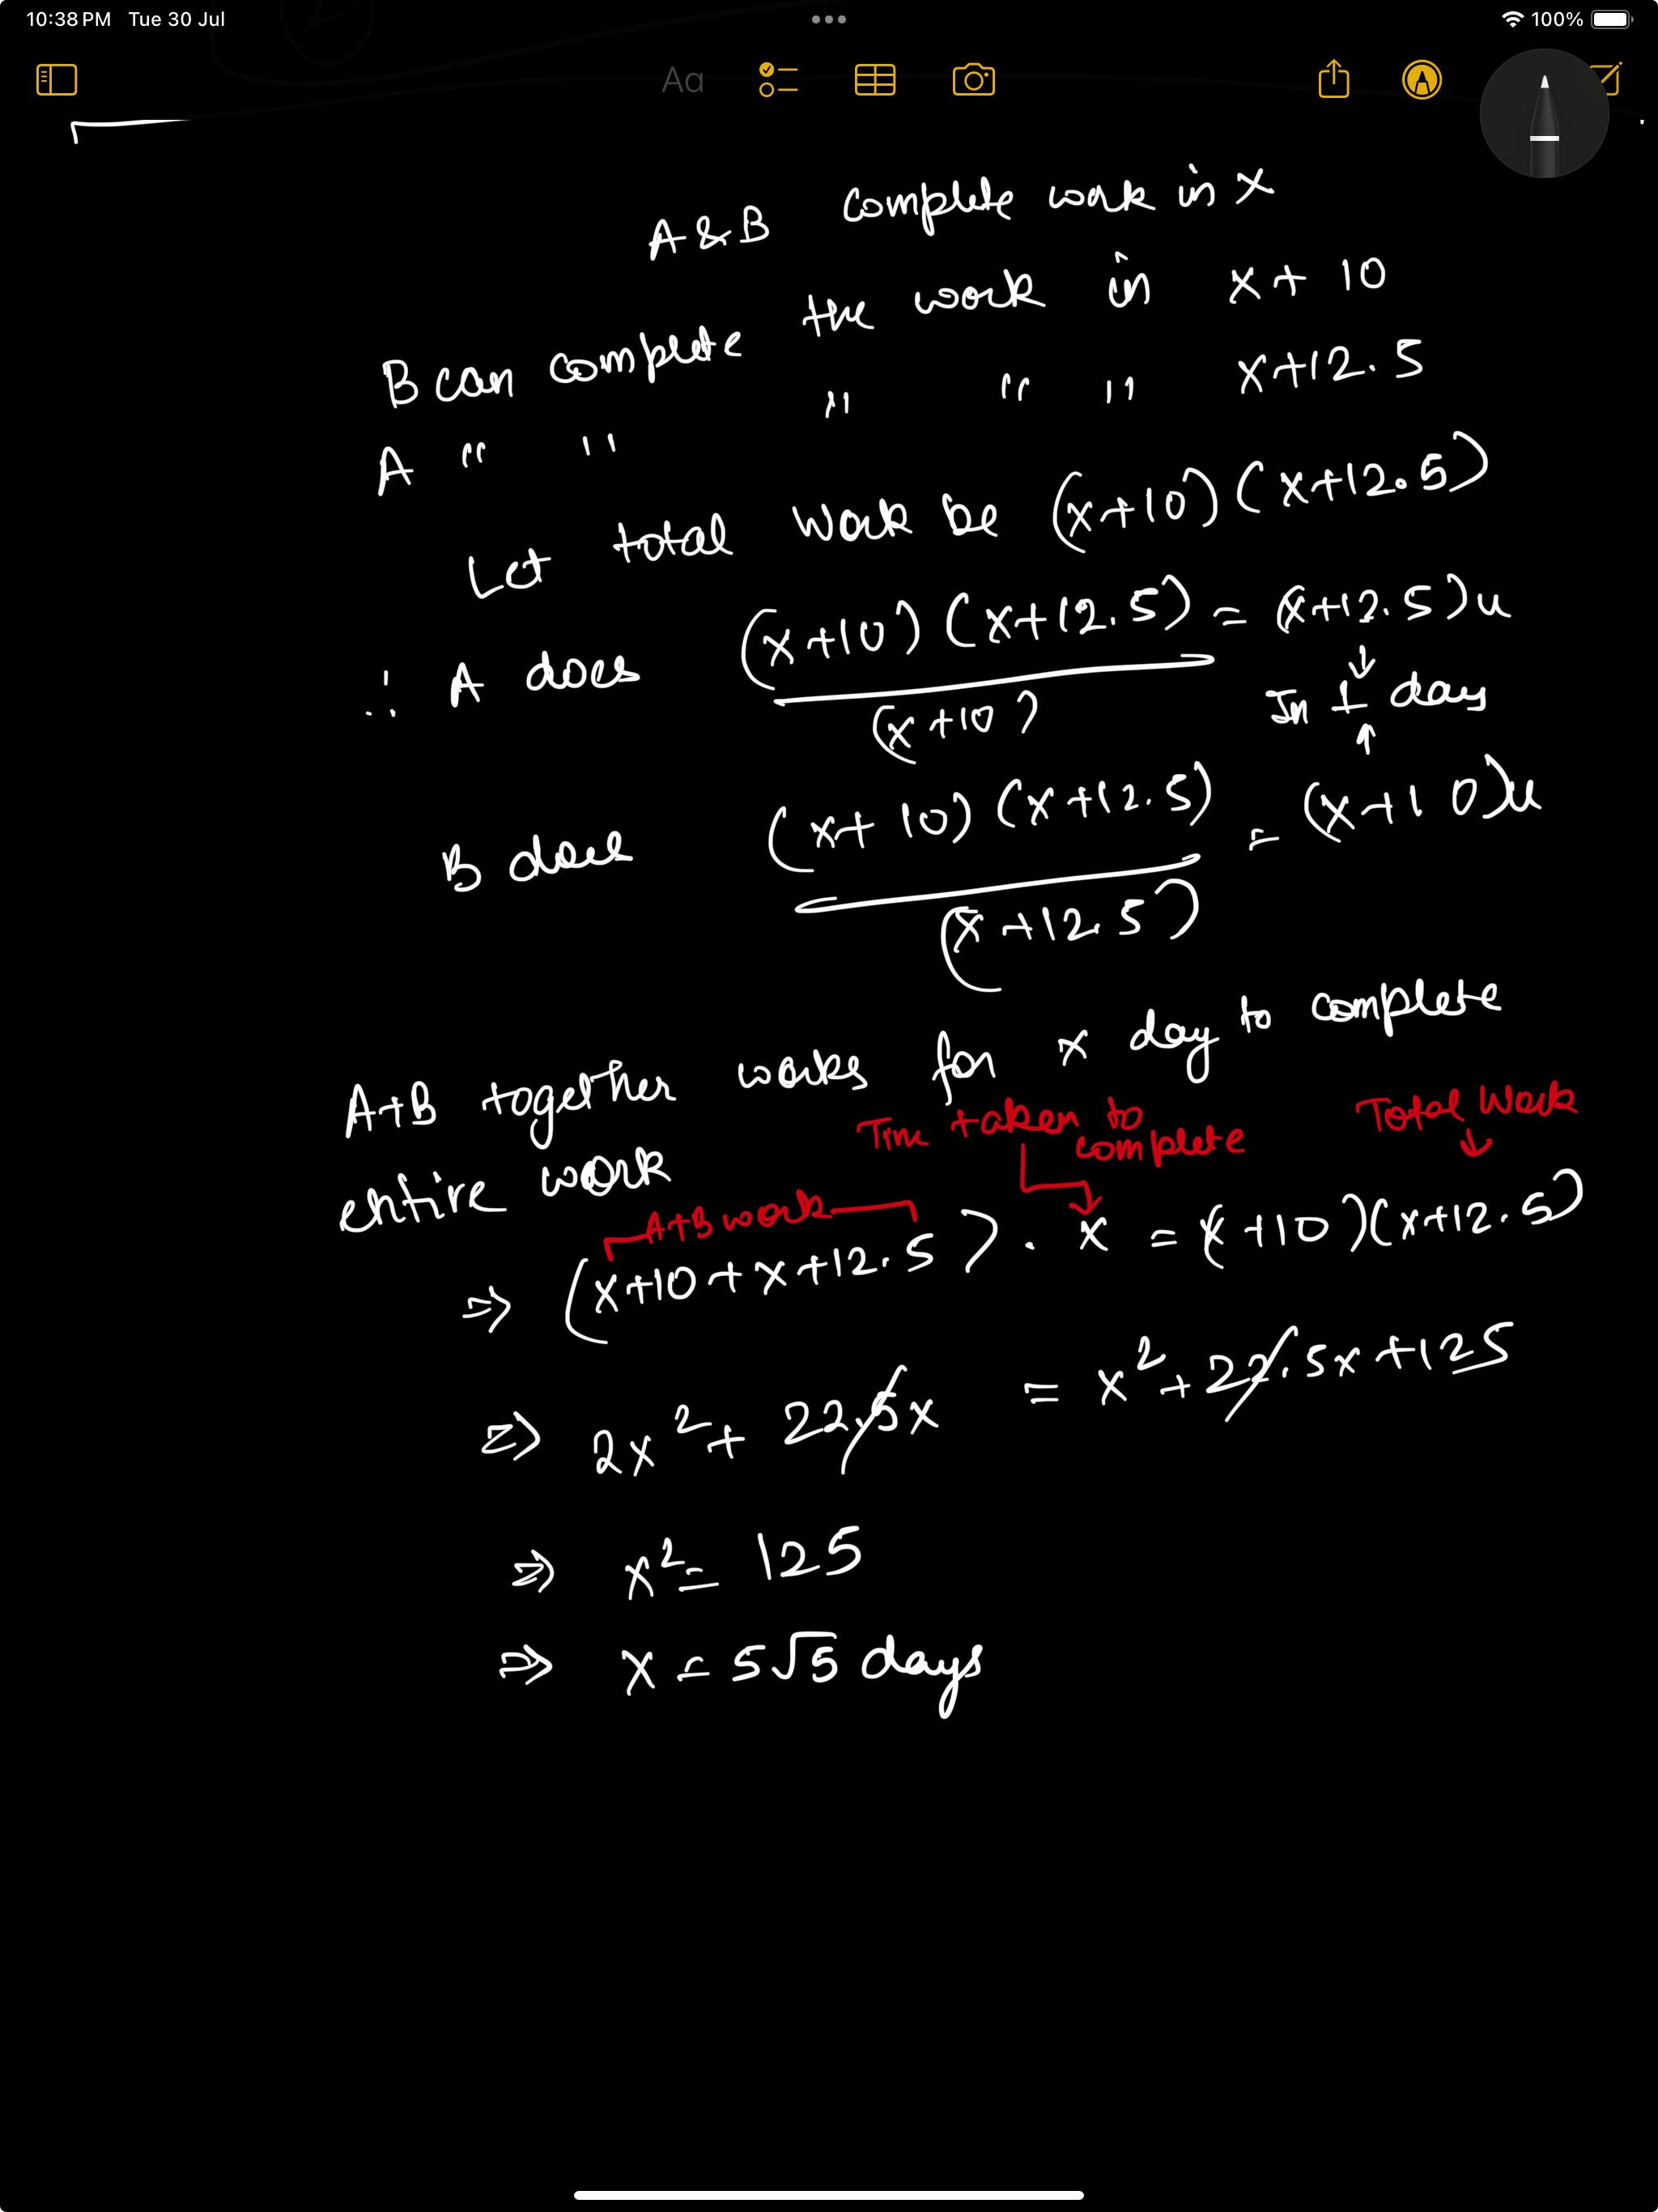 10:38 PM Tue 30 Jul
100%
Aa
A & B complete work in x
B can complete the work in x + 10
A " " " " " x+12.5
Let total work be (x+10)(x+12.5)
∴ A does (x+10)(x+12.5) / (x+10) = (x+12.5)u
In 1 day
B does (x+10)(x+12.5) / (x+12.5) = (x+10)u
A+B together works for x day to complete
entire work
Time taken to complete
Total Work
A+B work
⇒ (x+10+x+12.5) . x = (x+10)(x+12.5)
⇒ 2x²+ 22.5x = x²+22.5x+125
⇒ x² = 125
⇒ x = 5√5 days